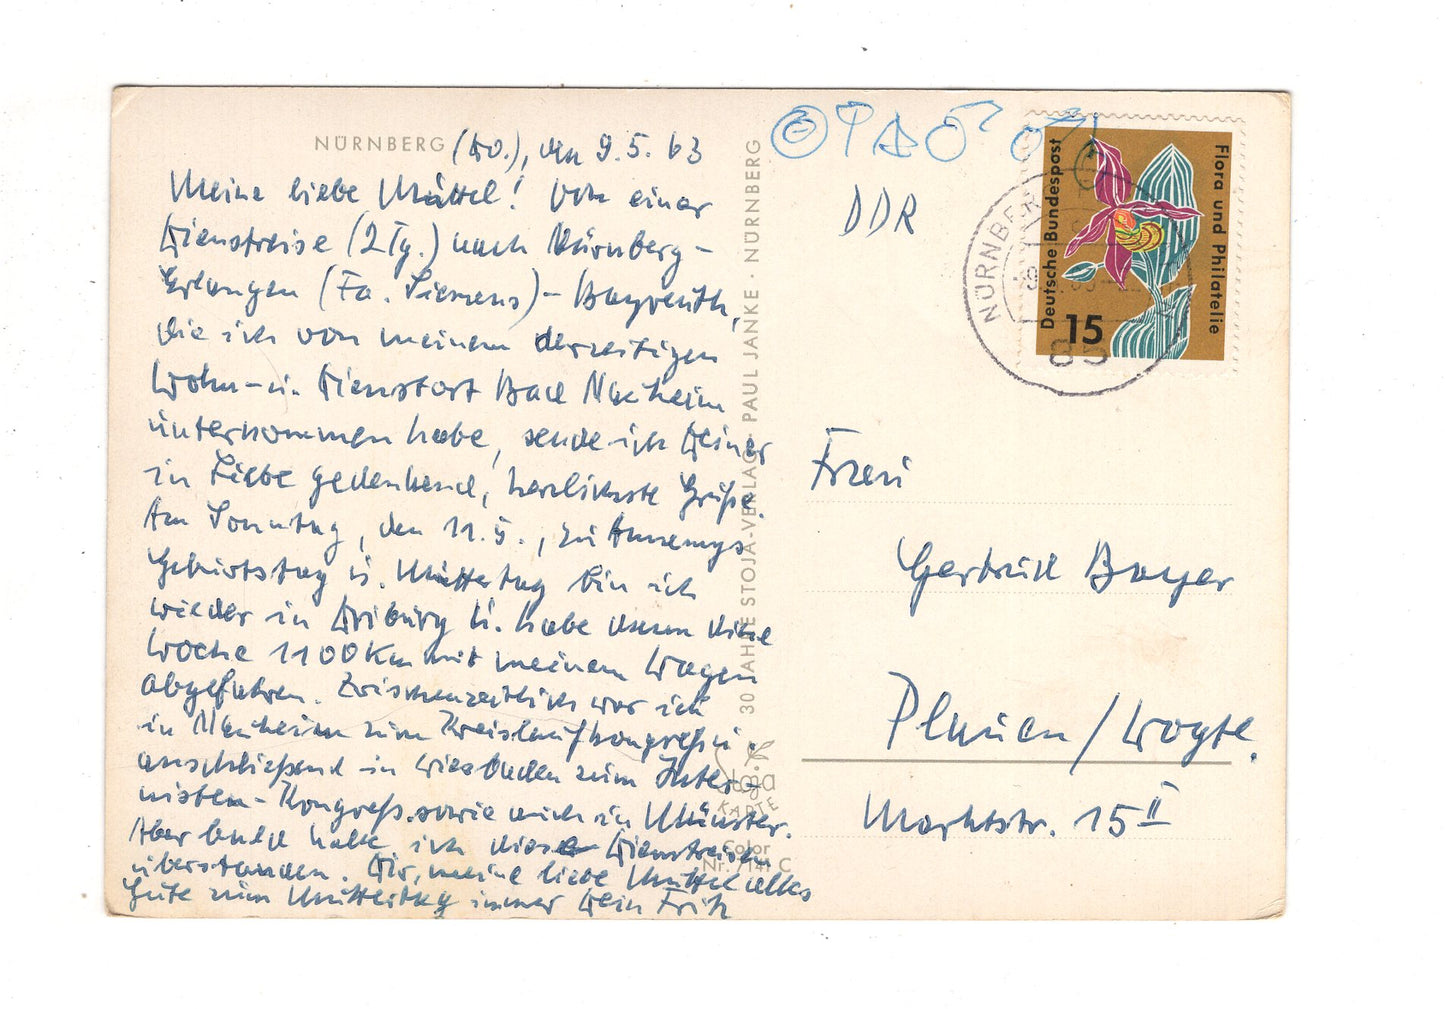 NÜRNBERG (Do.), den 9.5.63
Meine liebe Muttel! Von einer
Dienstreise (2 Tg.) nach Nürnberg-
Erlangen (Fa. Siemens) - Bayreuth,
die ich von meinem derzeitigen
Wohn- u. Dienstort Bad Nauheim
unternommen habe, sende ich Deiner
in Liebe gedenkend, herzlichste Grüße.
Am Sonntag, den 11.5., zu Annemys
Geburtstag u. Muttertag bin ich
wieder in Driburg u. habe dann diese
Woche 1100 Km mit meinem Wagen
abgefahren. Zwischenzeitlich war ich
in Nauheim zum Kreislaufkongreß u.
anschließend in Wiesbaden zum Inter-
nisten-Kongreß sowie auch in Münster.
Aber bald habe ich diese Dienstreisen
überstanden. Dir, meine liebe Muttel alles
Gute zum Muttertag immer Dein Fritz
30 JAHRE STOJA-VERLAG · PAUL JANKE · NÜRNBERG
Stoja
KARTE
Color
Nr. 7141 C
DDR
NÜRNBERG
85
Deutsche Bundespost
15
Flora und Philatelie
Frau
Gertrud Bayer
Plauen / Vogtl.
Marktstr. 15 II